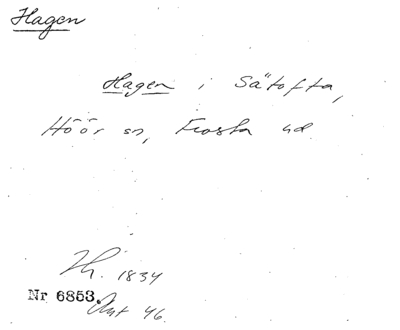 Hagen
Hagen i Sätofta,
Höör sn, Frosta hd
Fh. 1834
Nr 6853. Ant 46.